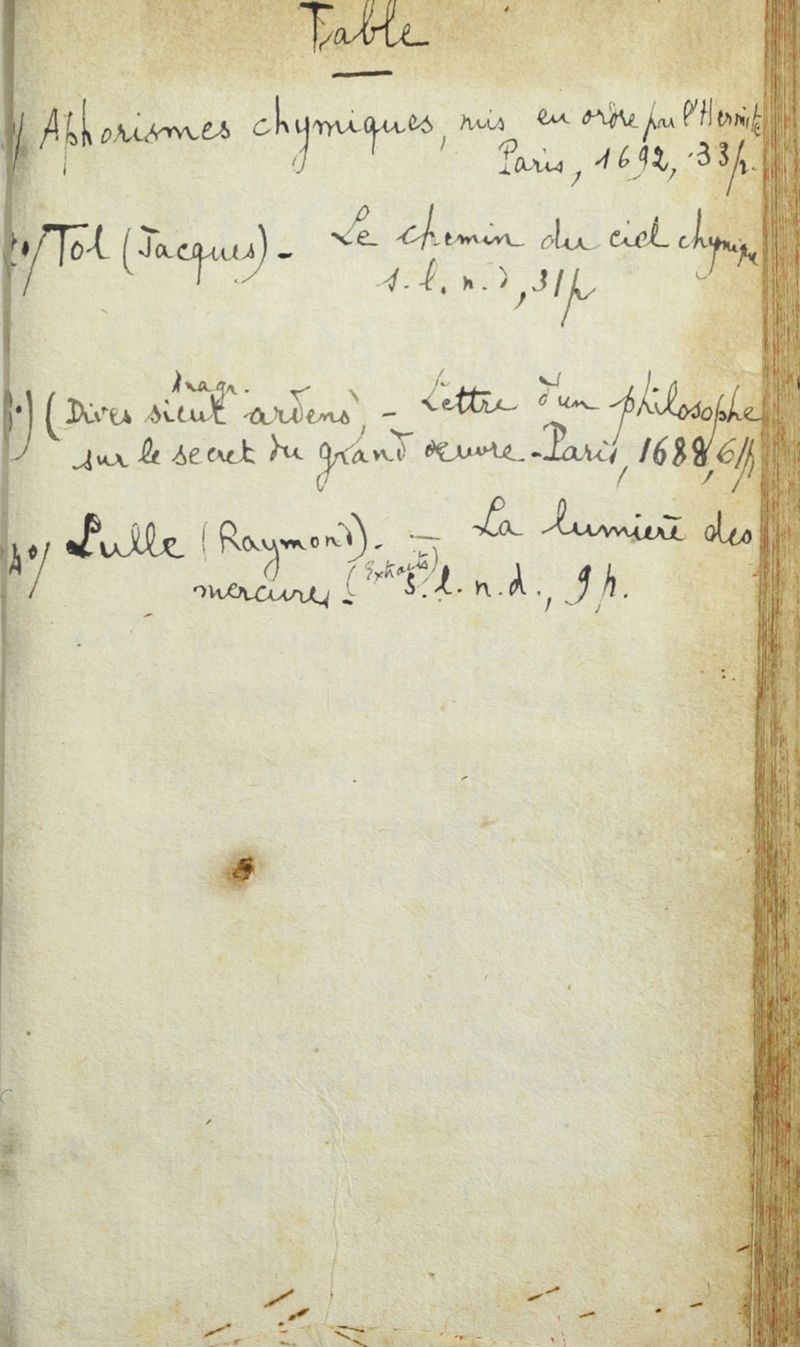 Table
1°/ Aphorismes chymiques, mis en ordre par l'Hermite
Paris, 1692, 33p.
2°/ Tol (Jacques) - Le chemin du ciel chymique
s.l.n.d, 31p
3°) (Dives sicut ardens, - Lettre d'un philosophe
sur le secret du grand œuvre - Paris, 1688, 61p
4°/ Lulle (Raymond). - La lumière des
mercures (Extraits) - s.l.n.d., 9p.